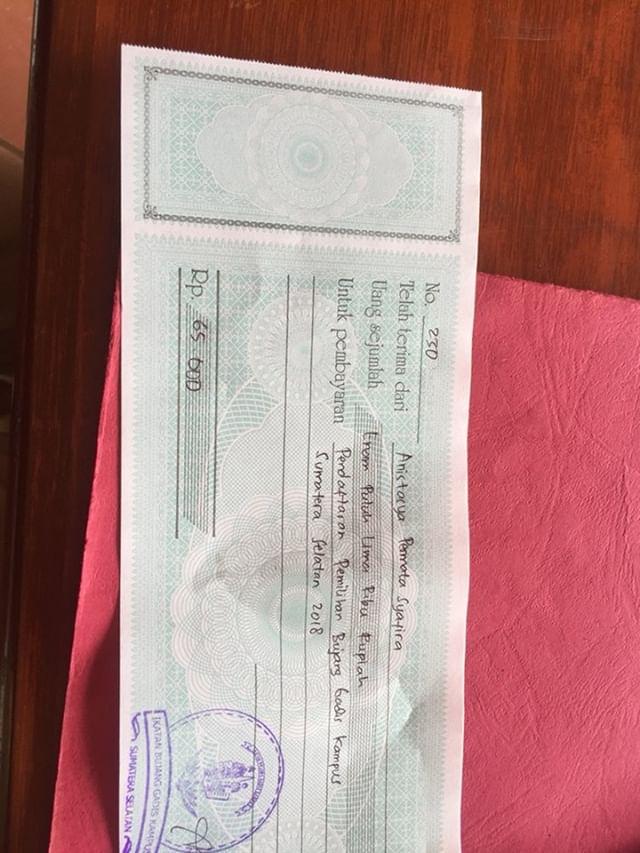 No. 230
Telah terima dari Anistasya Permata Syafira
Uang sejumlah Enam Puluh Lima Ribu Rupiah
Untuk pembayaran Pendaftaran Pemilihan Bujang Gadis Kampus
Sumatera Selatan 2018
Rp. 65 000
IKATAN BUJANG GADIS KAMPUS
SUMATERA SELATAN